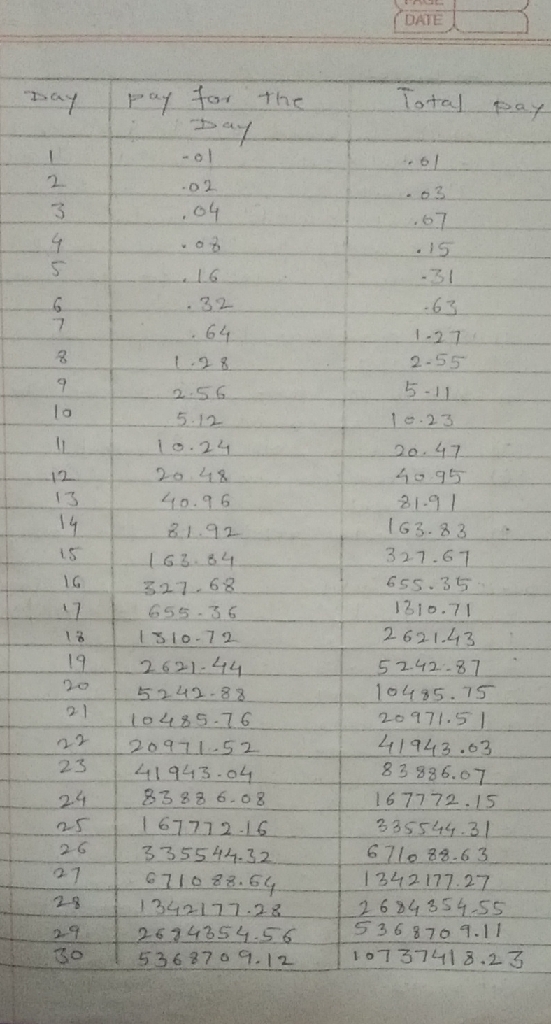 PAGE
DATE
Day pay for the Total pay
Day
1 .01 .01
2 .02 .03
3 .04 .07
4 .08 .15
5 .16 .31
6 .32 .63
7 .64 1.27
8 1.28 2.55
9 2.56 5.11
10 5.12 10.23
11 10.24 20.47
12 20.48 40.95
13 40.96 81.91
14 81.92 163.83
15 163.84 327.67
16 327.68 655.35
17 655.36 1310.71
18 1310.72 2621.43
19 2621.44 5242.87
20 5242.88 10485.75
21 10485.76 20971.51
22 20971.52 41943.03
23 41943.04 83886.07
24 83886.08 167772.15
25 167772.16 335544.31
26 335544.32 671088.63
27 671088.64 1342177.27
28 1342177.28 2684354.55
29 2684354.56 5368709.11
30 5368709.12 10737418.23